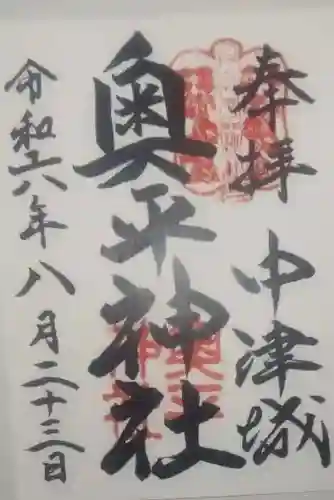 奉拝
中津城
奥平神社
令和六年八月二十三日